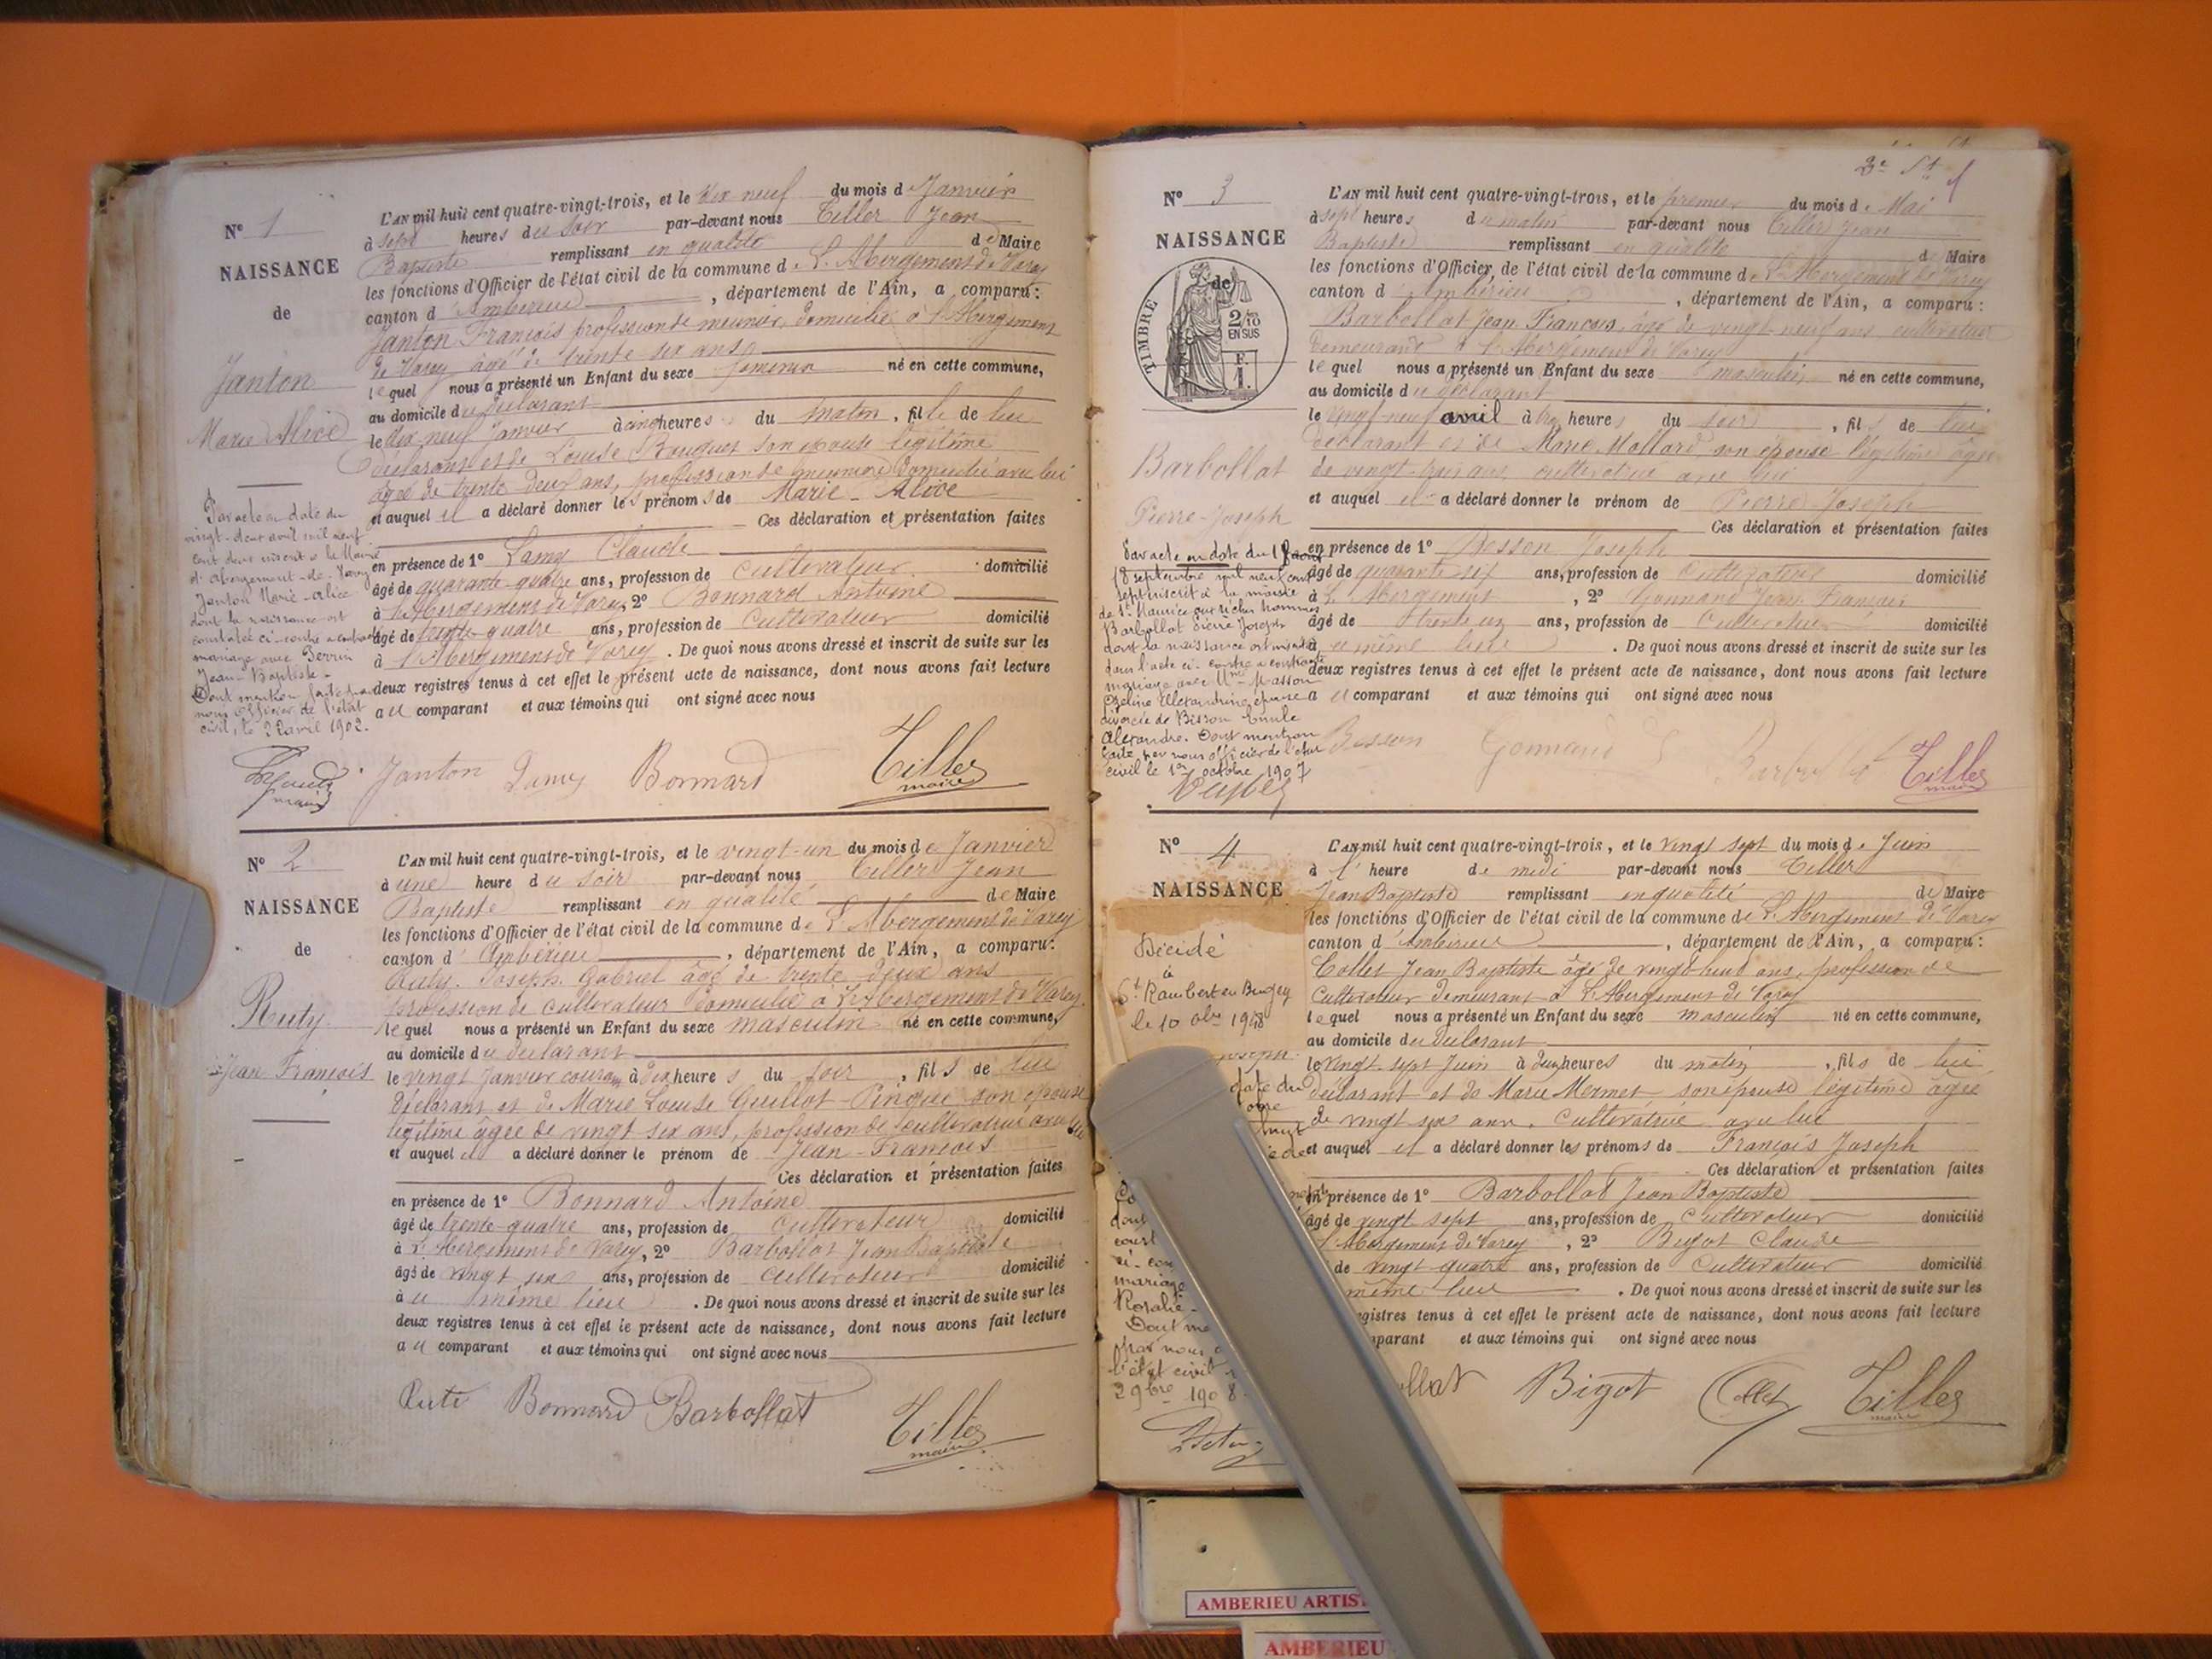 N° 1
NAISSANCE
de
Janton
Marie Alice
L'AN mil huit cent quatre-vingt-trois, et le dix neuf du mois d Janvier
à sept heures du soir par-devant nous Tiller Jean
Baptiste remplissant en qualité de Maire
les fonctions d'Officier de l'état civil de la commune de L'Abergement de Varey
canton d'Ambérieu, département de l'Ain, a comparu:
Janton François profession de meunier, domicilié à l'Abergement
de Varey âgé de trente six ans
lequel nous a présenté un Enfant du sexe féminin né en cette commune,
au domicile du déclarant
le dix neuf Janvier à cinq heures du matin, fille de lui
déclarant et de Louise Bouquet son épouse légitime
âgée de trente deux ans, profession de meunière domiciliée avec lui
et auquel il a déclaré donner les prénoms de Marie-Alice
Ces déclaration et présentation faites
en présence de 1° Lamy Claude
âgé de quarante-quatre ans, profession de Cultivateur domicilié
à L'Abergement de Varey, 2° Bonnard Antoine
âgé de trente-quatre ans, profession de Cultivateur domicilié
à l'Abergement de Varey. De quoi nous avons dressé et inscrit de suite sur les
deux registres tenus à cet effet le présent acte de naissance, dont nous avons fait lecture
au comparant et aux témoins qui ont signé avec nous
Par acte en date du
vingt-deux avril mil neuf
cent deux inscrit à la Mairie
d'Abergement-de-Varey
Janton Marie-Alice
dont la naissance est
constatée ci-contre a contracté
mariage avec Perrin
Jean-Baptiste-
Dont mention faite par
nous Officier de l'état
civil, le 22 avril 1902.
maire
Janton Lamy Bonnard Tiller
maire
N° 2
NAISSANCE
de
Ruty
Jean François
L'AN mil huit cent quatre-vingt-trois, et le vingt-un du mois de Janvier
à une heure du soir par-devant nous Tiller Jean
Baptiste remplissant en qualité de Maire
les fonctions d'Officier de l'état civil de la commune de L'Abergement de Varey
canton d'Ambérieu, département de l'Ain, a comparu:
Ruty Joseph Gabriel âgé de trente deux ans
profession de cultivateur domicilié à L'Abergement de Varey
lequel nous a présenté un Enfant du sexe masculin né en cette commune,
au domicile du déclarant
le vingt Janvier courant à dix heures du soir, fils de lui
déclarant et de Marie Louise Guillot Pingue son épouse
légitime âgée de vingt six ans, profession de cultivatrice avec lui
et auquel il a déclaré donner le prénom de Jean-François
Ces déclaration et présentation faites
en présence de 1° Bonnard Antoine
âgé de trente-quatre ans, profession de Cultivateur domicilié
à L'Abergement de Varey, 2° Barbollat Jean Baptiste
âgé de vingt six ans, profession de Cultivateur domicilié
à u même lieu. De quoi nous avons dressé et inscrit de suite sur les
deux registres tenus à cet effet le présent acte de naissance, dont nous avons fait lecture
au comparant et aux témoins qui ont signé avec nous
Ruti Bonnard Barbollat Tiller
maire
N° 3
NAISSANCE
de
TIMBRE
2/10
EN SUS
F.
1.
Barbollat
Pierre-Joseph
L'AN mil huit cent quatre-vingt-trois, et le premier du mois de Mai
à sept heures du matin par-devant nous Tiller Jean
Baptiste remplissant en qualité de Maire
les fonctions d'Officier de l'état civil de la commune de L'Abergement de Varey
canton d'Ambérieu, département de l'Ain, a comparu:
Barbollat Jean François, âgé de vingt-neuf ans cultivateur
demeurant à L'Abergement de Varey
lequel nous a présenté un Enfant du sexe masculin né en cette commune,
au domicile du déclarant
le vingt-neuf avril à heures du soir, fils de lui
déclarant et de Marie Mollard, son épouse légitime âgée
de vingt-trois ans, cultivatrice avec lui
et auquel il a déclaré donner le prénom de Pierre-Joseph
Ces déclaration et présentation faites
en présence de 1° Besson Joseph
âgé de quarante-six ans, profession de Cultivateur domicilié
à L'Abergement, 2° Gonnand Jean François
âgé de trente un ans, profession de Cultivateur domicilié
à ce même lieu. De quoi nous avons dressé et inscrit de suite sur les
deux registres tenus à cet effet le présent acte de naissance, dont nous avons fait lecture
au comparant et aux témoins qui ont signé avec nous
Par acte en date du
18 septembre mil neuf cent
sept inscrit à la mairie
de St Maurice
Barbollat Pierre Joseph
dont la naissance est
dans l'acte ci-contre a contracté
mariage avec Masson
Zéline Alexandrine épouse
divorcée de Bisson Emile
Alexandre. Dont mention
faite par nous officier de l'état
civil le 1er octobre 1907
Besson Gonnand Barbollat Tiller
maire
N° 4
NAISSANCE
Décédé
à
St Rambert en Bugey
le 10
L'AN mil huit cent quatre-vingt-trois, et le vingt sept du mois de Juin
à l' heure de midi par-devant nous Tiller
Jean Baptiste remplissant en qualité de Maire
les fonctions d'Officier de l'état civil de la commune de L'Abergement de Varey
canton d'Ambérieu, département de l'Ain, a comparu:
Collet Jean Baptiste âgé de vingt-huit ans, profession de
Cultivateur demeurant à L'Abergement de Varey
lequel nous a présenté un Enfant du sexe masculin né en cette commune,
au domicile du déclarant
le vingt-sept Juin à deux heures du matin, fils de lui
déclarant et de Marie Mermet son épouse légitime âgée
de vingt six ans, Cultivatrice avec lui
et auquel il a déclaré donner les prénoms de François Joseph
Ces déclaration et présentation faites
en présence de 1° Barbollat Jean Baptiste
âgé de vingt sept ans, profession de Cultivateur domicilié
l'Abergement de Varey, 2° Bigot Claude
de vingt quatre ans, profession de Cultivateur domicilié
même lieu. De quoi nous avons dressé et inscrit de suite sur les
registres tenus à cet effet le présent acte de naissance, dont nous avons fait lecture
comparant et aux témoins qui ont signé avec nous
date du
mariage
Rosalie-
par nous
l'état civil
2 9bre 1908
Bigot Collet Tiller
maire
AMBERIEU ARTIS
AMBERIEU